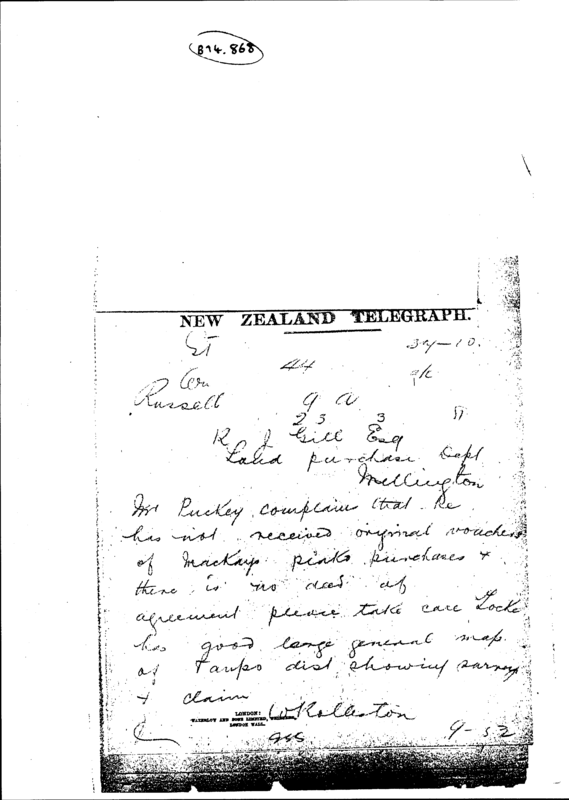 B74.868
NEW ZEALAND TELEGRAPH.
44
Russell 9 a
2 3 3
R J Gill Esq
Land purchase Dept
Wellington
Mr Puckey complains that he
has not received original vouchers
of Mackays piako purchases +
there is no deed of
agreement please take care Locke
has good large general map
of Taupo dist showing survey
+ claim
LONDON:
WATERLOW AND SONS LIMITED,
LONDON WALL.
W Rolleston
9-52